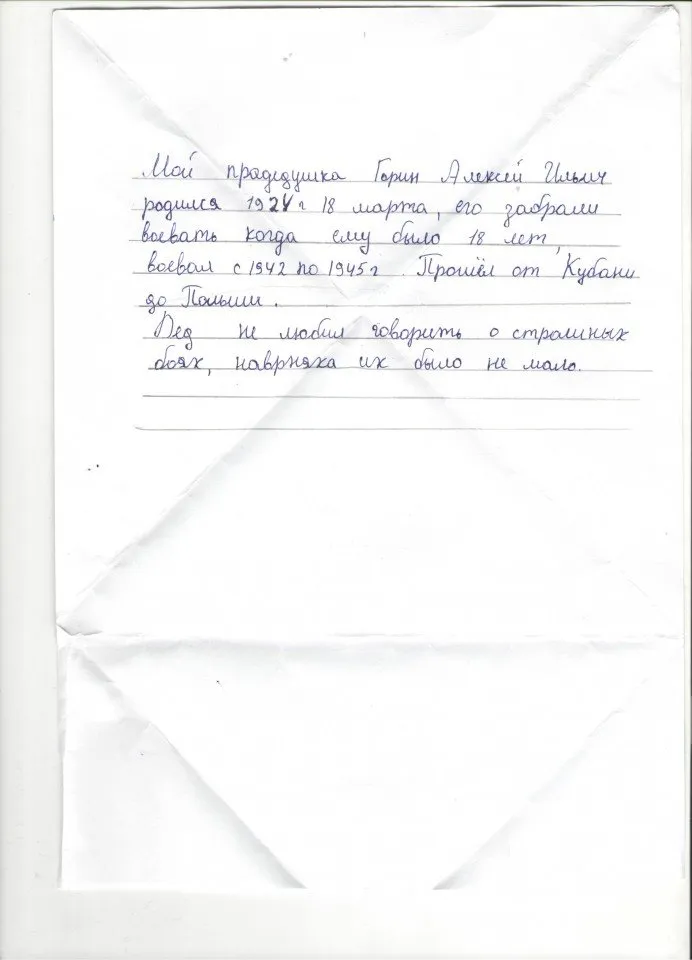 Мой прадедушка Горин Алексей Ильич
родился 1924 г 18 марта, его забрали
воевать когда ему было 18 лет,
воевал с 1942 по 1945 г. Прошёл от Кубани
до Польши.
Дед не любил говорить о страшных
боях, наврняка их было не мало.